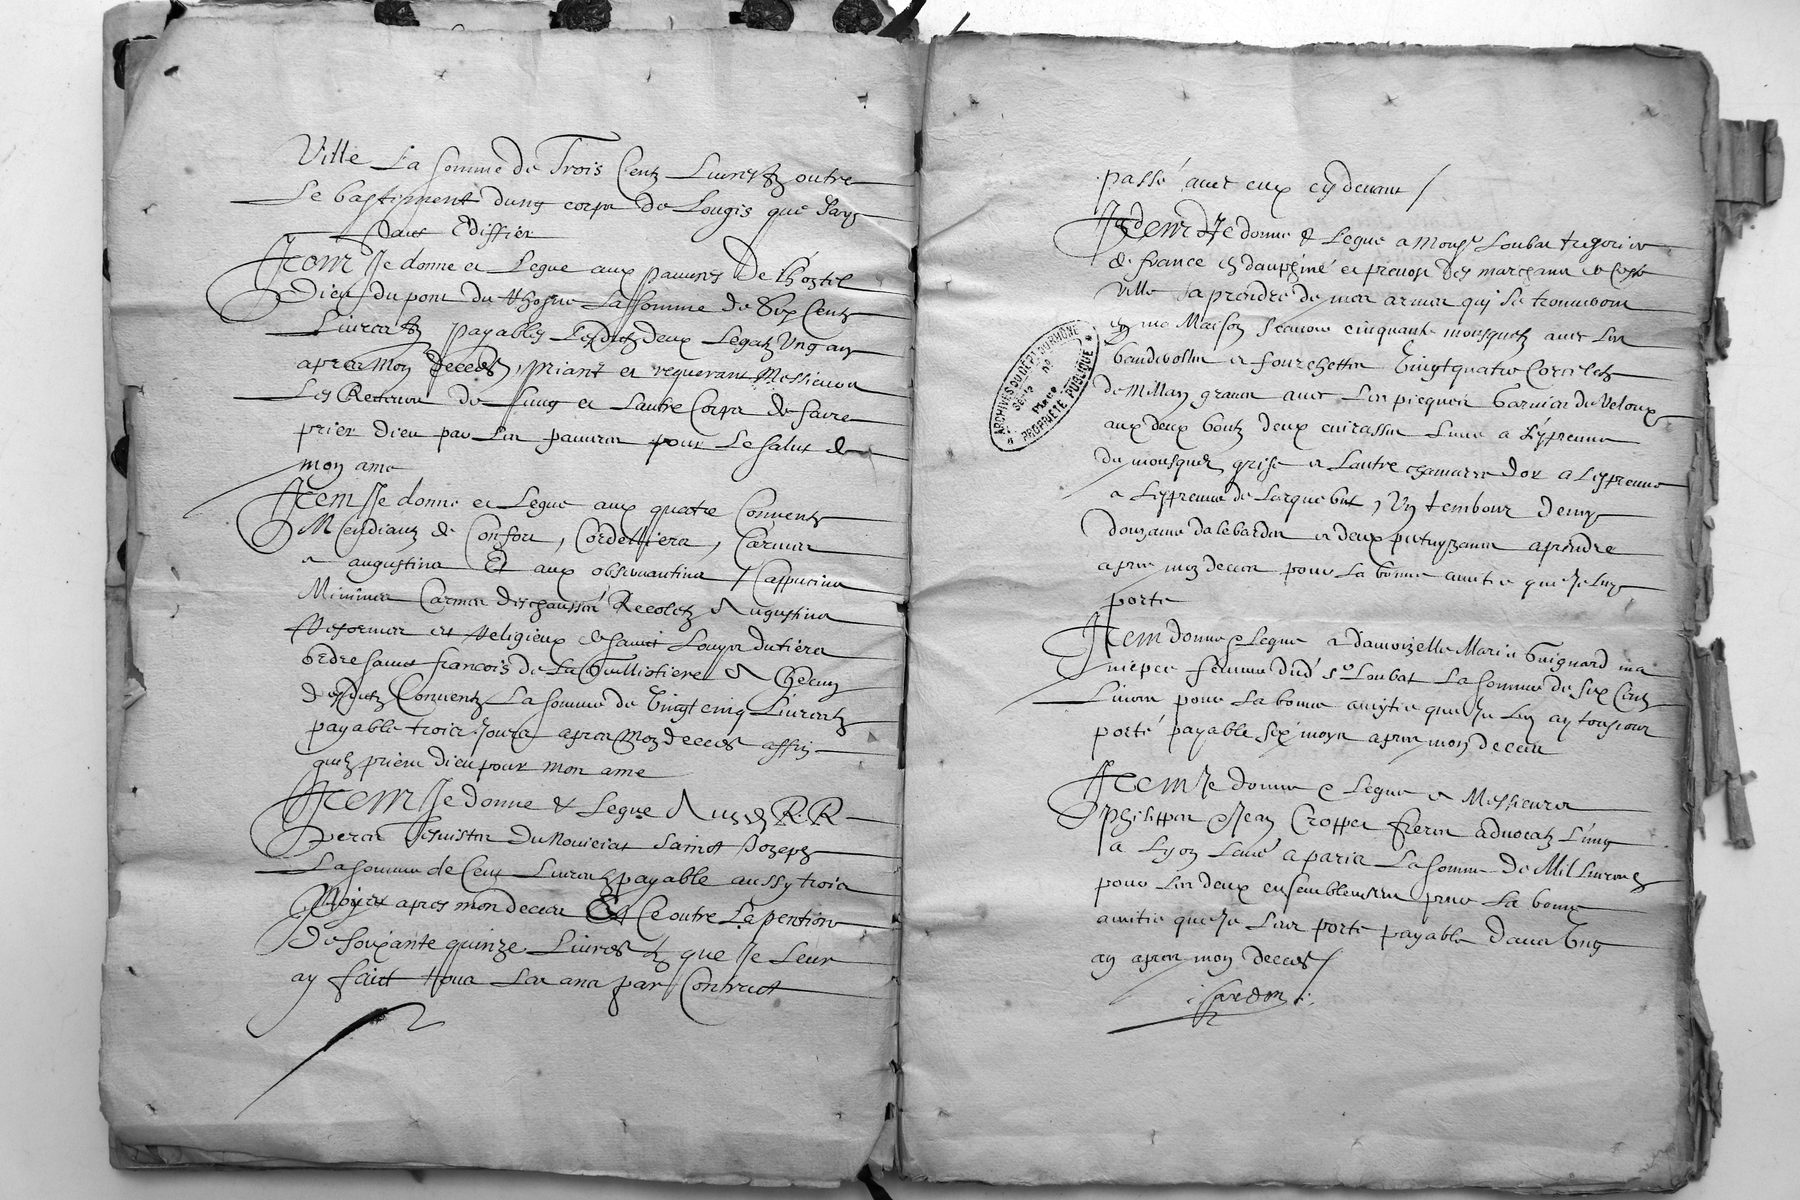 Ville La somme de Trois Centz Livres tz outre
Le bastiment dung corps de Lougis que Jays
faict Ediffier
Item Je donne et Legue aux pauvres De Lhostel
Dieu du pont du Rhosne La somme de Six Centz
Livres tz payables Lesdictz deux Legatz Ung an
apres Mon Deceds, priant et requerant Messieurs
Les Recteurs de Lung et Lautre Corps de faire
prier Dieu par Les pauvres pour Le salut de
mon ame
Item Je donne et Legue aux quatre Convents
Mendiantz de Confort, Cordelliers, Carmes
et augustins Et aux observantins, Cappucins
Minimes Carmes deschaussés Recoletz Augustins
Reformes et Religieux de sainct Louys du tiers
ordre sainct francois de La Guilliotiere A Chacun
desdictz Conventz La somme de Vingt cinq Livres tz
payable trois Jours apres Mon deceds affin
quilz prient dieu pour mon ame
Item Je donne & Legue Aux R. R.
peres Jesuistes Du Noviciat Sainct Jozeph
La somme de Cent Livres payable aussy trois
Mois apres mon deces Et Ce outre La pention
De soixante quinze Livres tz que Je Leur
ay faict tous Les ans par Contract
passé avec eux cy devant /
Item Je donne & Legue a Monsr Loubat tresorier
de france en dauphiné et prevost des marchans de ceste
Ville a prendre de mes armes qui se trouveront
en ma Maison scavoir cinquante mousquetz avec Les
bandevolles et fourchettes Vingt quatre Corceletz
de Millan graves avec Les picques Garnies de Veloux
aux deux boutz deux cuirasses Lune a Lespreuve
du mousquet grise et Lautre chamarre dor a Lespreuve
a Lespreuve de Larquebut, Un tembour demy
douzaine dalebardes et deux pertuyzanes a prendre
apres mon deces pour La bonne amitie que Je Luy
porte
Item donne & Legue a damoizelle Marie Guignard ma
niepce femme dud sr Loubat La somme de six Centz
Livres pour La bonne amytie que Je Luy ay tousjours
porté payable six moys apres mon deces
Item Je donne & Legue a Messieurs
Philippes & Jean Croppet freres advocatz Lung
a Lyon Lautre a paris La somme de Mil Livres tz
pour Les deux ensemblement pour La bonne
amitie que Je Leur porte payable dans Ung
an apres mon deceds /
ARCHIVES DU DÉPT DU RHONE
SÉRIE No
PIÈCE
PROPRIÉTÉ PUBLIQUE